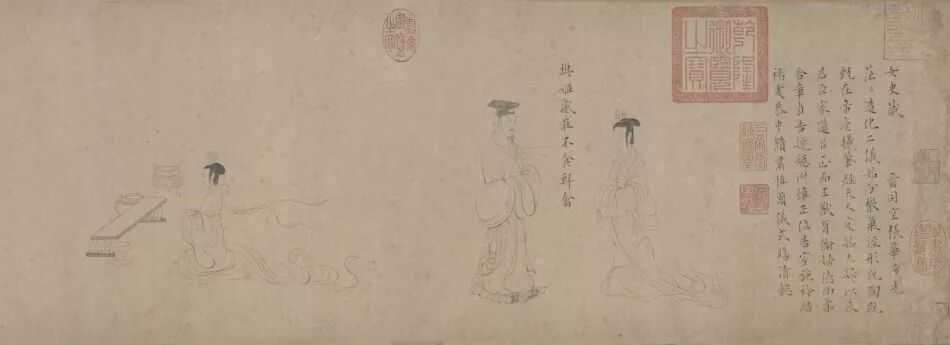 女史箴 晉司空張華茂先
茫〻造化二儀始分散氣流形既陶既
甄在帝庖犧肇經天人爰始夫婦以及
君臣家道以正而王猷有倫婦德尚柔
含章貞吉婉嫕淑慎正位居室施衿結
褵虔恭中饋肅慎爾儀式瞻清懿
乾隆御覽之寶
三希堂精鑑璽
宜子孫
樊姬感莊不食鮮禽
嘉慶御覽之寶